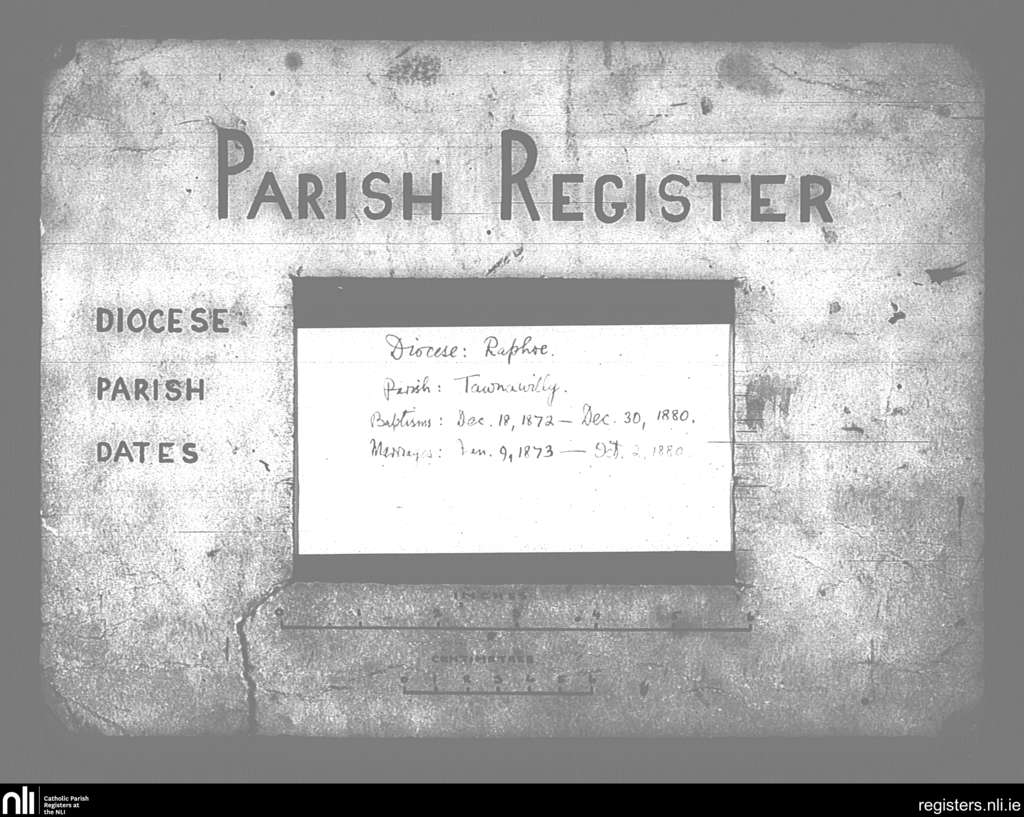 PARISH REGISTER
DIOCESE
PARISH
DATES
Diocese: Raphoe.
Parish: Tawnawilly.
Baptisms: Dec. 18, 1872 — Dec. 30, 1880.
Marriages: Jan. 9, 1873 — Oct. 2, 1880
INCHES
0 1 2 3 4 5 6
CENTIMETRES
0 1 2 3 4 5 6
nli
Catholic Parish
Registers at
the NLI
registers.nli.ie